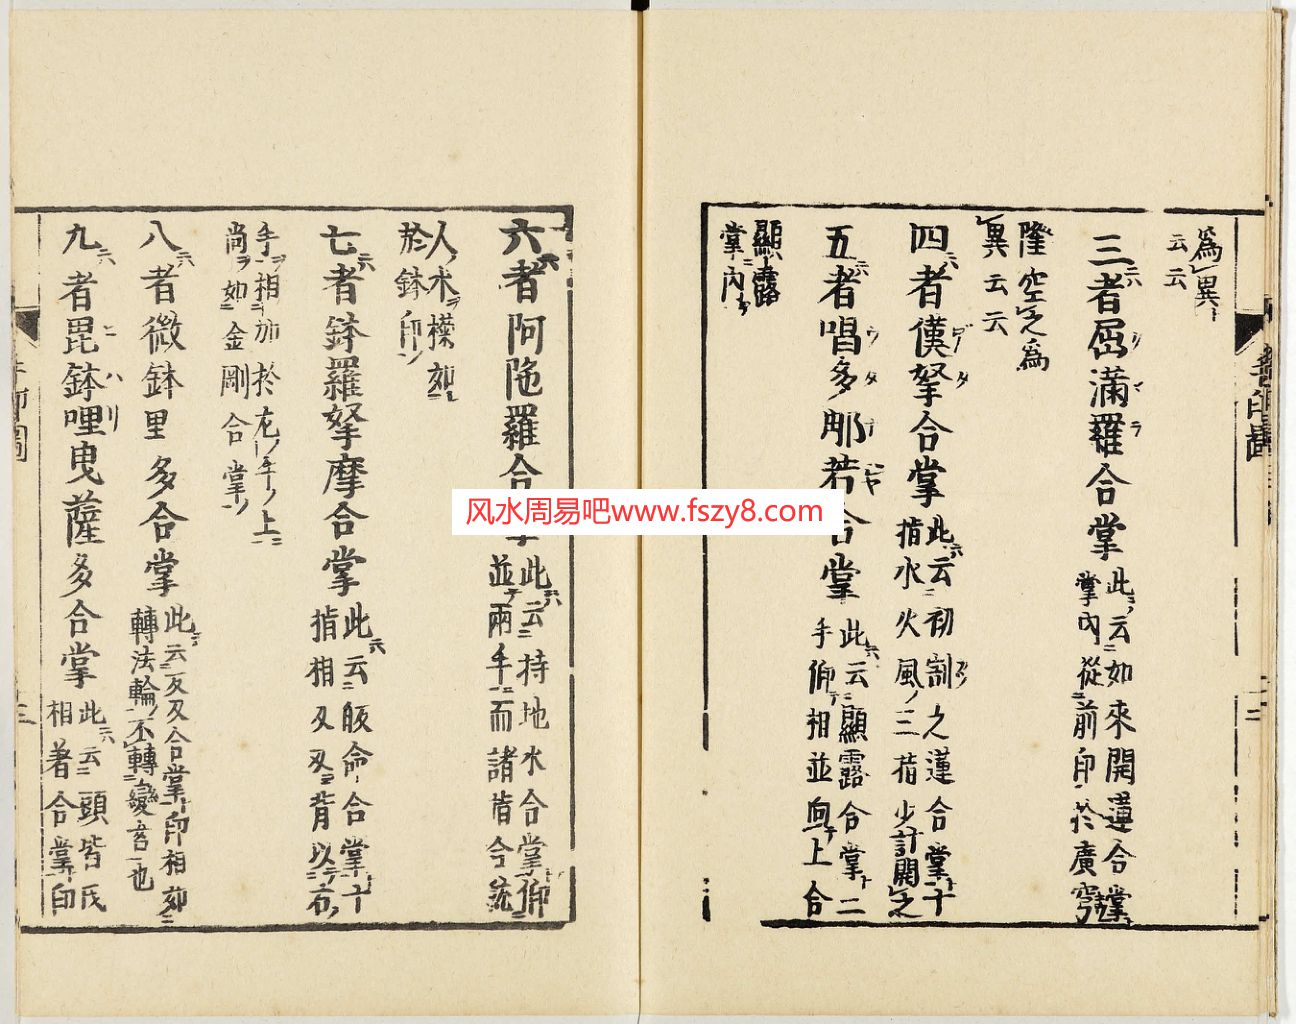 爲異
云云
三者屈滿羅合掌
此云如來開蓮合掌
掌內從前印於廣穹
隆空之爲
異云云
四者僕拏合掌
此云初割之蓮合掌十
指水火風三指少許開之
五者唱多那若合掌
此云顯露合掌二
手仰相並向上合
顯露
掌內
六者阿陁羅合掌
此云持地水合掌仰
並兩手而諸指合
人水
於鉢印
七者鉢羅拏摩合掌
此云皈命合掌十
指相叉叉背以右
手相加於左手上
尚如金剛合掌
八者微鉢里多合掌
此云反叉合掌印相
轉法輪不轉變言也
九者毘鉢哩曳薩多合掌
此云頭皆
相著合掌印
风水周易吧www.fszy8.com